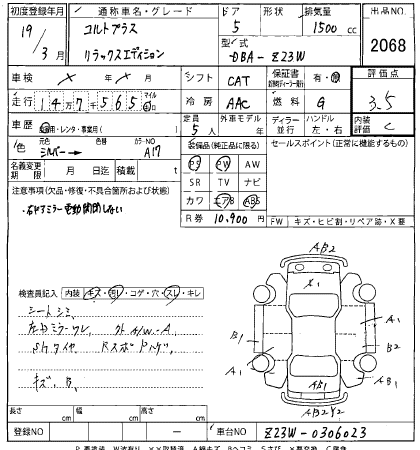 初度登録年月 通称車名・グレード ドア 形状 排気量 出品NO
19/3月 コルトプラス リラックスエディション 5 1500cc 2068
型式 DBA-Z23W
車検 × 年 ×月 シフト CAT 保証書 有・無 評価点
走行 14万7千565 マイル km 冷房 AAC 燃料 G 3.5
車歴 自家用・レンタ・事業用( ) 定員 5人 外車モデル 年 ディーラー 並行 ハンドル 左・右 内装評価 C
色 シルバー→ 色替 カラーNO A17 装備品(純正品に限る) セールスポイント(正常に機能するもの)
PS PW AW
名義変更期限 月 日迄 積載 t SR TV ナビ
注意事項(欠品・修復・不具合箇所および状態) カワ エアB ABS
右ドアミラー電動開閉しない R券 10,900円
FW キズ・ヒビ割・リペア跡・X要
検査員記入 内装 キズ・汚レ・コゲ・穴・スレ・キレ
シートシミ
左ドアミラーワレ、 外A/W-A
キズ、B、
AB2
X1
B1 A1
A1 B2
AB1 AB1
AB2Y2
長さ cm 幅 cm 高さ cm
登録NO ー 車台NO Z23W-0306023